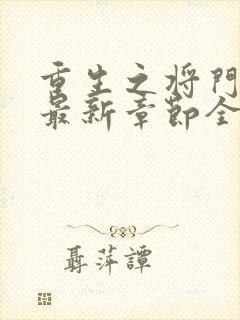 重生之将門
最新章節全
聶萍譚